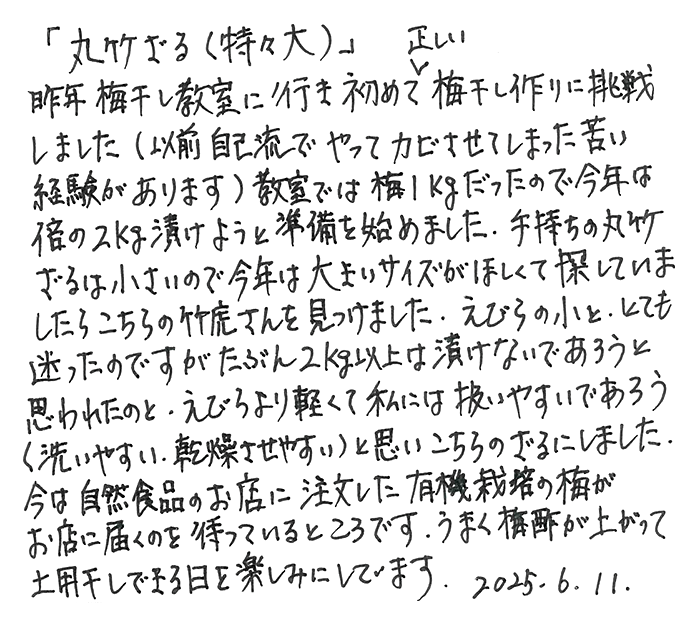 「丸竹ざる(特々大)」
昨年梅干し教室に行き初めて正しい梅干し作りに挑戦
しました(以前自己流でやってカビさせてしまった苦い
経験があります)教室では梅1kgだったので今年は
倍の2kg漬けようと準備を始めました.手持ちの丸竹
ざるは小さいので今年は大きいサイズがほしくて探していま
したらこちらの竹虎さんを見つけました.えびらの小と、とても
迷ったのですがたぶん2kg以上は漬けないであろうと
思われたのと、えびらより軽くて私には扱いやすいであろう
(洗いやすい、乾燥させやすい)と思いこちらのざるにしました.
今は自然食品のお店に注文した有機栽培の梅が
お店に届くのを待っているところです.うまく梅酢が上がって
土用干しできる日を楽しみにしています. 2025.6.11.